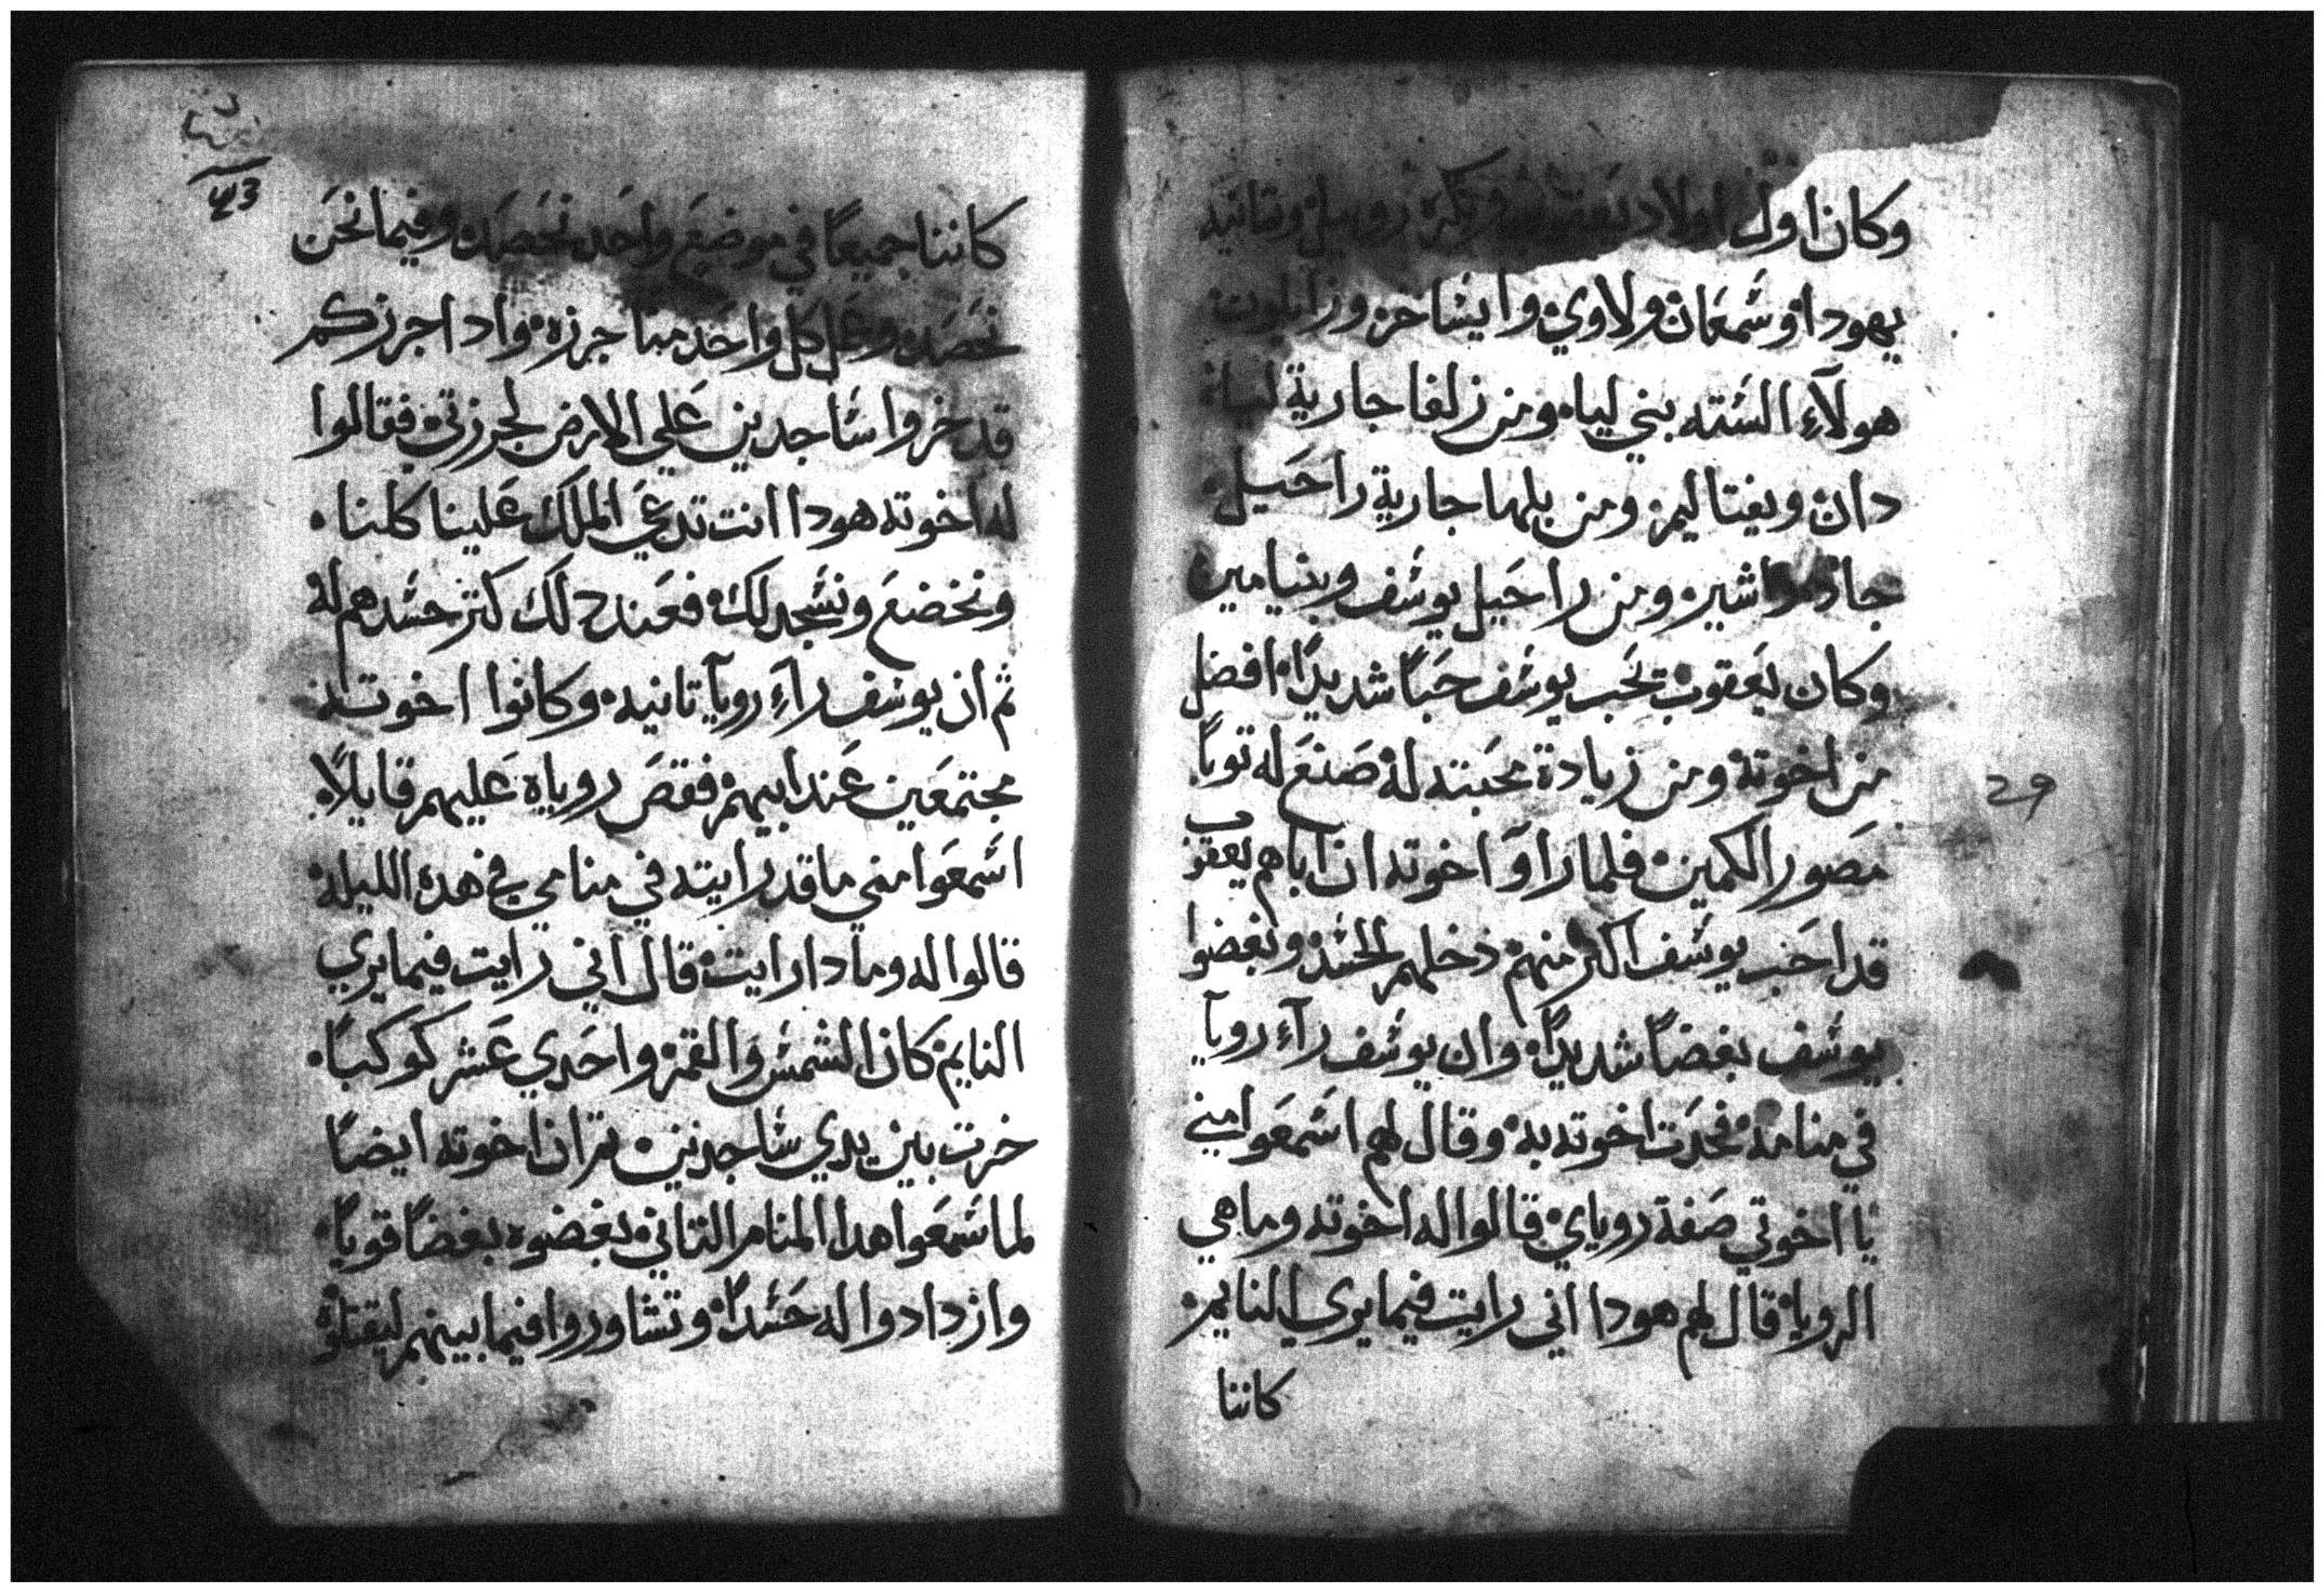 وكان اول اولاد يعقوب وبكره روبيل وتانيه
يهودا وشمعان ولاوي وايساخر وزابلون
هولآء السته بني لياه ومن زلفا جارية لياه
دان ونفتاليم ومن بلها جارية راحيل
جاد واشير ومن راحيل يوسف وبنيامين
وكان يعقوب يحب يوسف حباً شديداً افضل
من اخوته ومن زيادة محبته له صنع له توباً
مصور الكمين فلما راوا اخوته ان اباهم يعقوب
قد احب يوسف اكتر منهم دخلهم الحسد وبغضوا
يوسف بغضاً شديداً وان يوسف رآء رويآ
في منامه فحدت اخوته به وقال لهم اسمعوا مني
يا اخوتي صفة روياي قالوا له اخوته وما هي
الرويا قال لهم هودا اني رايت فيما يري النايم
كاننا
43
كاننا جميعاً في موضع واحد نحصد وفيما نحن
نحصد وعمل كل واحد منا جرزه وادا جرزكم
قد خروا ساجدين علي الارض لجرزتي فقالوا
له اخوته هودا انت تدعي الملك علينا كلنا
ونخضع ونسجد لك فعند دلك كتر حسدهم له
تم ان يوسف رآء رويآ تانيه وكانوا اخوته
مجتمعين عند ابيهم فقص روياه عليهم قايلاً
اسمعوا مني ما قد رايته في منامي في هده الليله
قالوا له وما دا رايت قال اني رايت فيما يري
النايم كان الشمس والقمر واحدي عشر كوكباً
خرت بين يدي ساجدين تم ان اخوته ايضاً
لما سمعوا هدا المنام التاني بغضوه بغضاً قوياً
وازدادوا له حسداً وتشاوروا فيما بينهم ليقتلوه
29